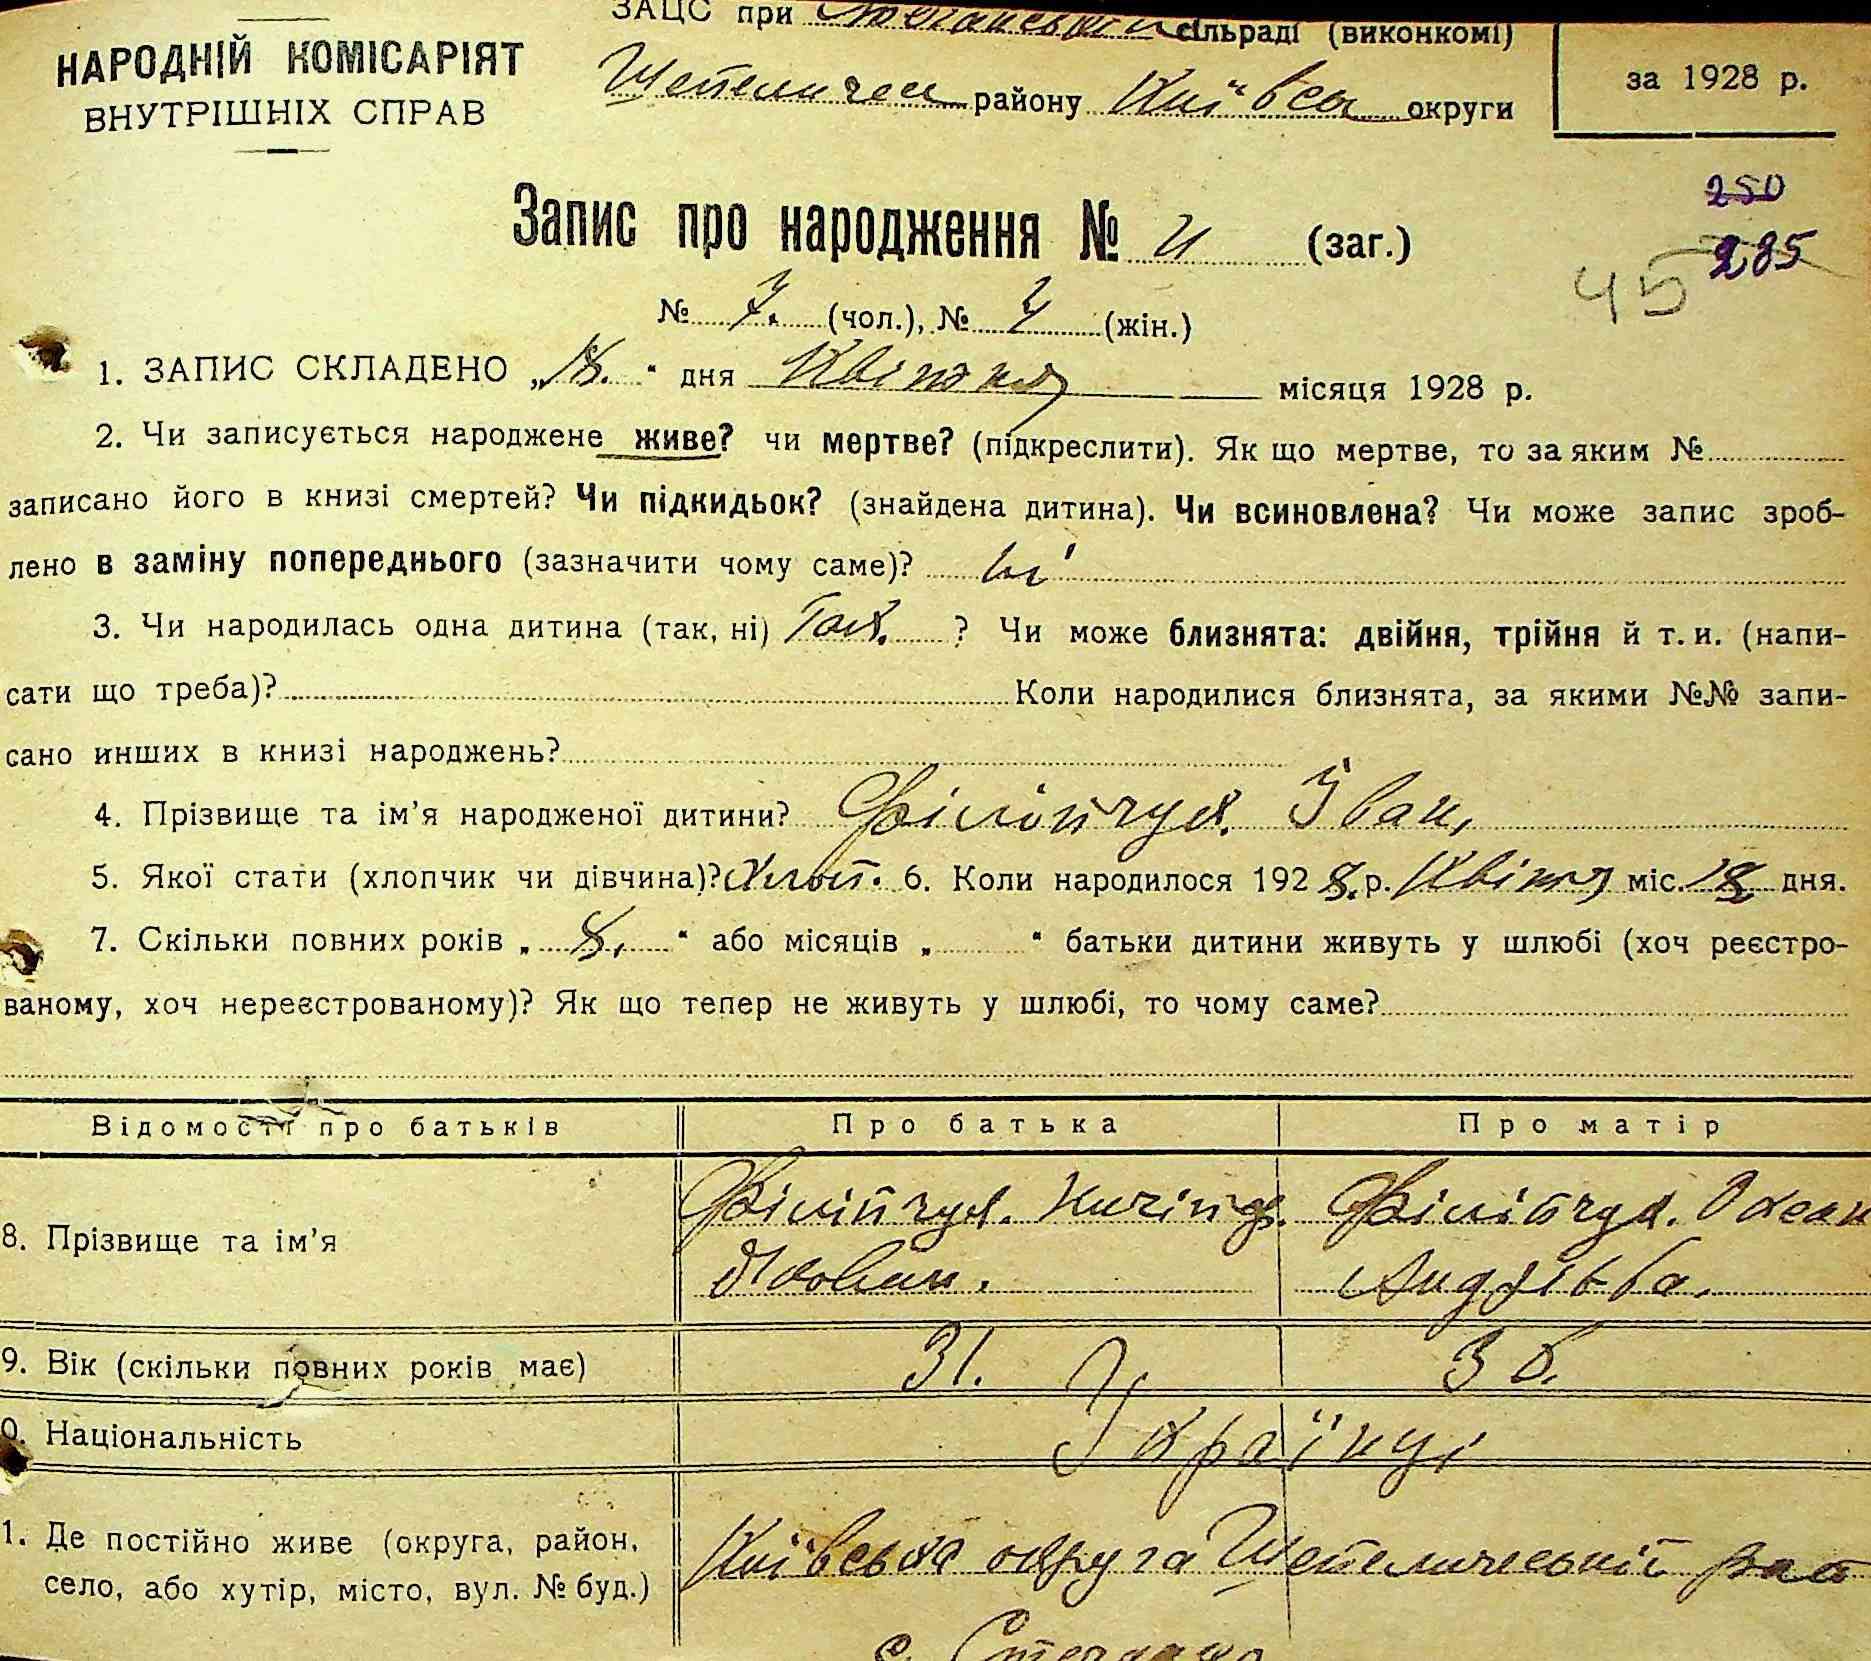 ЗАЦС при сільраді (виконкомі)
НАРОДНІЙ КОМІСАРІЯТ
ВНУТРІШНІХ СПРАВ
Шепеличськ району Київськ округи
за 1928 р.
250
285
45
Запис про народження № 11 (заг.)
№ 7. (чол.), № 4 (жін.)
1. ЗАПИС СКЛАДЕНО „18.“ дня Квітня місяця 1928 р.
2. Чи записується народжене живе? чи мертве? (підкреслити). Як що мертве, то за яким №
записано його в книзі смертей? Чи підкидьок? (знайдена дитина). Чи всиновлена? Чи може запис зроб-
лено в заміну попереднього (зазначити чому саме)? ні
3. Чи народилась одна дитина (так, ні) Так. ? Чи може близнята: двійня, трійня й т. и. (напи-
сати що треба)? Коли народилися близнята, за якими №№ запи-
сано инших в книзі народжень?
4. Прізвище та ім'я народженої дитини? Філіпчук. Іван,
5. Якої стати (хлопчик чи дівчина)? Хлоп. 6. Коли народилося 1928. р. Квітня міс. дня.
7. Скільки повних років „ 8. “ або місяців „ “ батьки дитини живуть у шлюбі (хоч реєстро-
ваному, хоч нереєстрованому)? Як що тепер не живуть у шлюбі, то чому саме?
Відомості про батьків Про батька Про матір
8. Прізвище та ім'я Філіпчук. Філіпчук. Оксан
Яковин. Андріївна.
9. Вік (скільки повних років має) 31. 36.
0. Національність Українці
1. Де постійно живе (округа, район, Київська округа Шепелическій рай
село, або хутір, місто, вул. № буд.)
с.